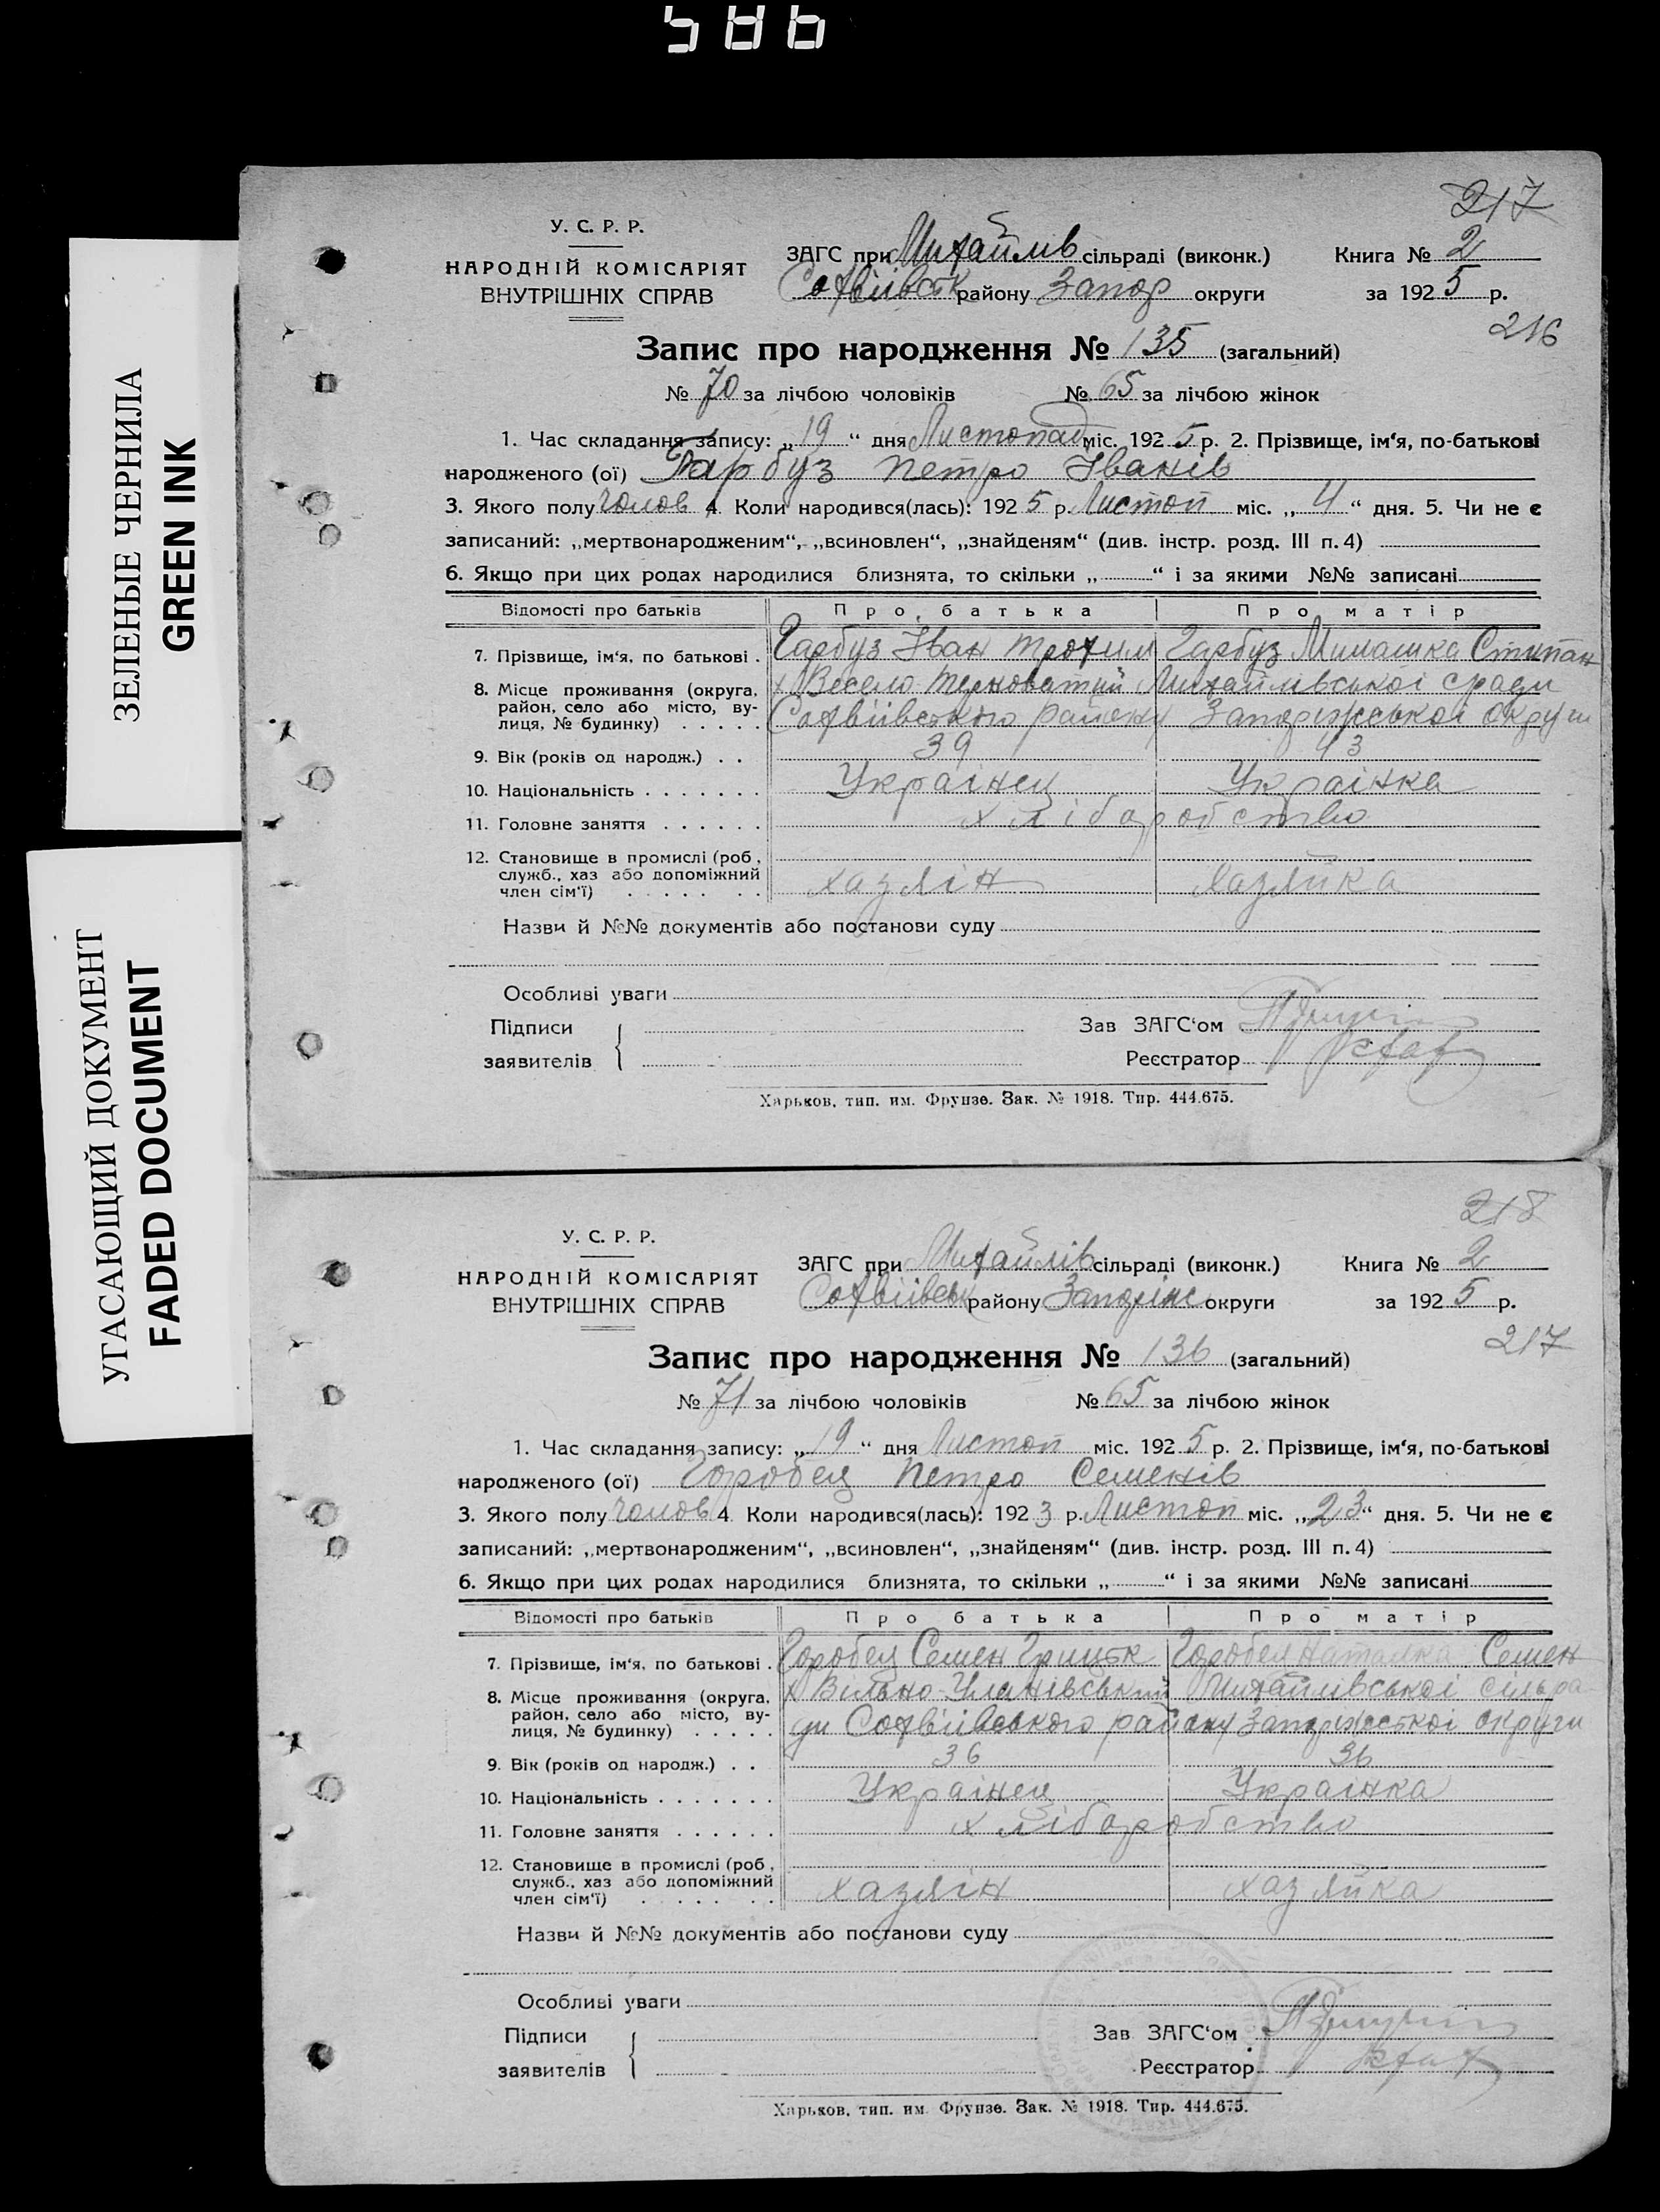 586
ЗЕЛЕНЫЕ ЧЕРНИЛА
GREEN INK
УГАСАЮЩИЙ ДОКУМЕНТ
FADED DOCUMENT
217
У. С. Р. Р.
НАРОДНІЙ КОМІСАРІЯТ
ВНУТРІШНІХ СПРАВ
ЗАГС при Михайлів сільраді (виконк.) Книга № 2
Софіївськ району Запор округи за 1925 р.
216
Запис про народження № 135 (загальний)
№ 70 за лічбою чоловіків № 65 за лічбою жінок
1. Час складання запису: „19“ дня Листопад міс. 1925 р. 2. Прізвище, ім‘я, по-батькові
народженого (ої) Гарбуз Петро Іванів
3. Якого полу чолов 4. Коли народився(лась): 1925 р. Листоп міс. „4“ дня. 5. Чи не є
записаний: „мертвонародженим“, „всиновлен“, „знайденям“ (див. інстр. розд. III п. 4)
6. Якщо при цих родах народилися близнята, то скільки „ “ і за якими №№ записані
Відомості про батьків Про батька Про матір
7. Прізвище, ім‘я, по батькові . Гарбуз Іван Трохим Гарбуз Степан
8. Місце проживання (округа, х Весело-Терноватий Михайлівської сради
район, село або місто, ву-
лиця, № будинку) . . . . . Софіївського району Запоріжської округи
9. Вік (років од народж.) . . 39 43
10. Національність . . . . . . . Українец Українка
11. Головне заняття . . . . . . хліборобство
12. Становище в промислі (роб.,
служб., хаз або допоміжний
член сім‘ї) . . . . . . хазяїн хазяйка
Назви й №№ документів або постанови суду
Особливі уваги
Підписи Зав ЗАГС‘ом
заявителів Реєстратор
Харьков, тип. им. Фрунзе. Зак. № 1918. Тир. 444.675.
218
У. С. Р. Р.
НАРОДНІЙ КОМІСАРІЯТ
ВНУТРІШНІХ СПРАВ
ЗАГС при Михайлів сільраді (виконк.) Книга № 2
Софіївськ району Запоріж округи за 1925 р.
217
Запис про народження № 136 (загальний)
№ 71 за лічбою чоловіків № 65 за лічбою жінок
1. Час складання запису: „19“ дня Листоп міс. 1925 р. 2. Прізвище, ім‘я, по-батькові
народженого (ої) Горобец Петро Семенів
3. Якого полу чолов 4. Коли народився(лась): 1923 р. Листоп міс. „23“ дня. 5. Чи не є
записаний: „мертвонародженим“, „всиновлен“, „знайденям“ (див. інстр. розд. III п. 4)
6. Якщо при цих родах народилися близнята, то скільки „ “ і за якими №№ записані
Відомості про батьків Про батька Про матір
7. Прізвище, ім‘я, по батькові . Горобец Семен Грицьк Горобец Наталка Семен
8. Місце проживання (округа, х Вільно-Уланівський Михайлівської сільра-
район, село або місто, ву-
лиця, № будинку) . . . . . ди Софіївського району Запоріжської округи
9. Вік (років од народж.) . . 36 36
10. Національність . . . . . . . Українец Українка
11. Головне заняття . . . . . . хліборобство
12. Становище в промислі (роб.,
служб., хаз або допоміжний
член сім‘ї) . . . . . . хазяїн хазяйка
Назви й №№ документів або постанови суду
Особливі уваги
Підписи Зав ЗАГС‘ом
заявителів Реєстратор
Харьков, тип. им. Фрунзе. Зак. № 1918. Тир. 444.675.